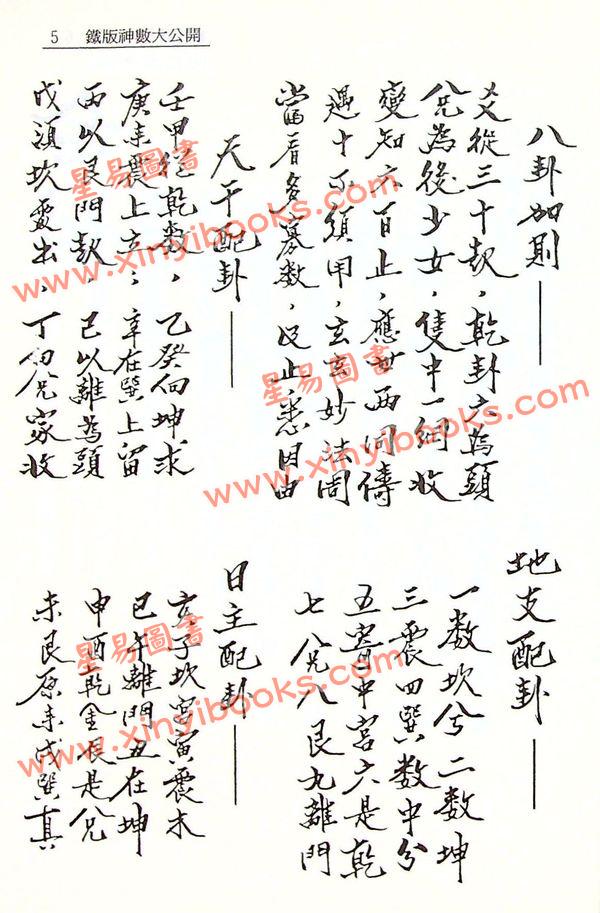 5 鐵版神數大公開
八卦加則——
爻從三十起，乾卦六為頭
兌為後少女，隻中一網收
變知六百止，應世兩同儔
遇十不須用，玄玄妙法周
當看多寡數，及止悉因由
天干配卦——
壬甲從乾數，乙癸向坤求
庚來震上立，辛在巽上留
丙以艮門起，己以離為頭
戊須坎處出，丁向兌家收
地支配卦——
一數坎兮二數坤
三震四巽數中分
五寄中宮六是乾
七兌八艮九離門
日主配卦——
亥子坎宮寅震木
巳午離門丑在坤
申酉乾金 是兌
未艮原來戌巽真
星易圖書
www.xinyibooks.com
星易圖書
www.xinyibooks.com
星易圖書
www.xinyibooks.com